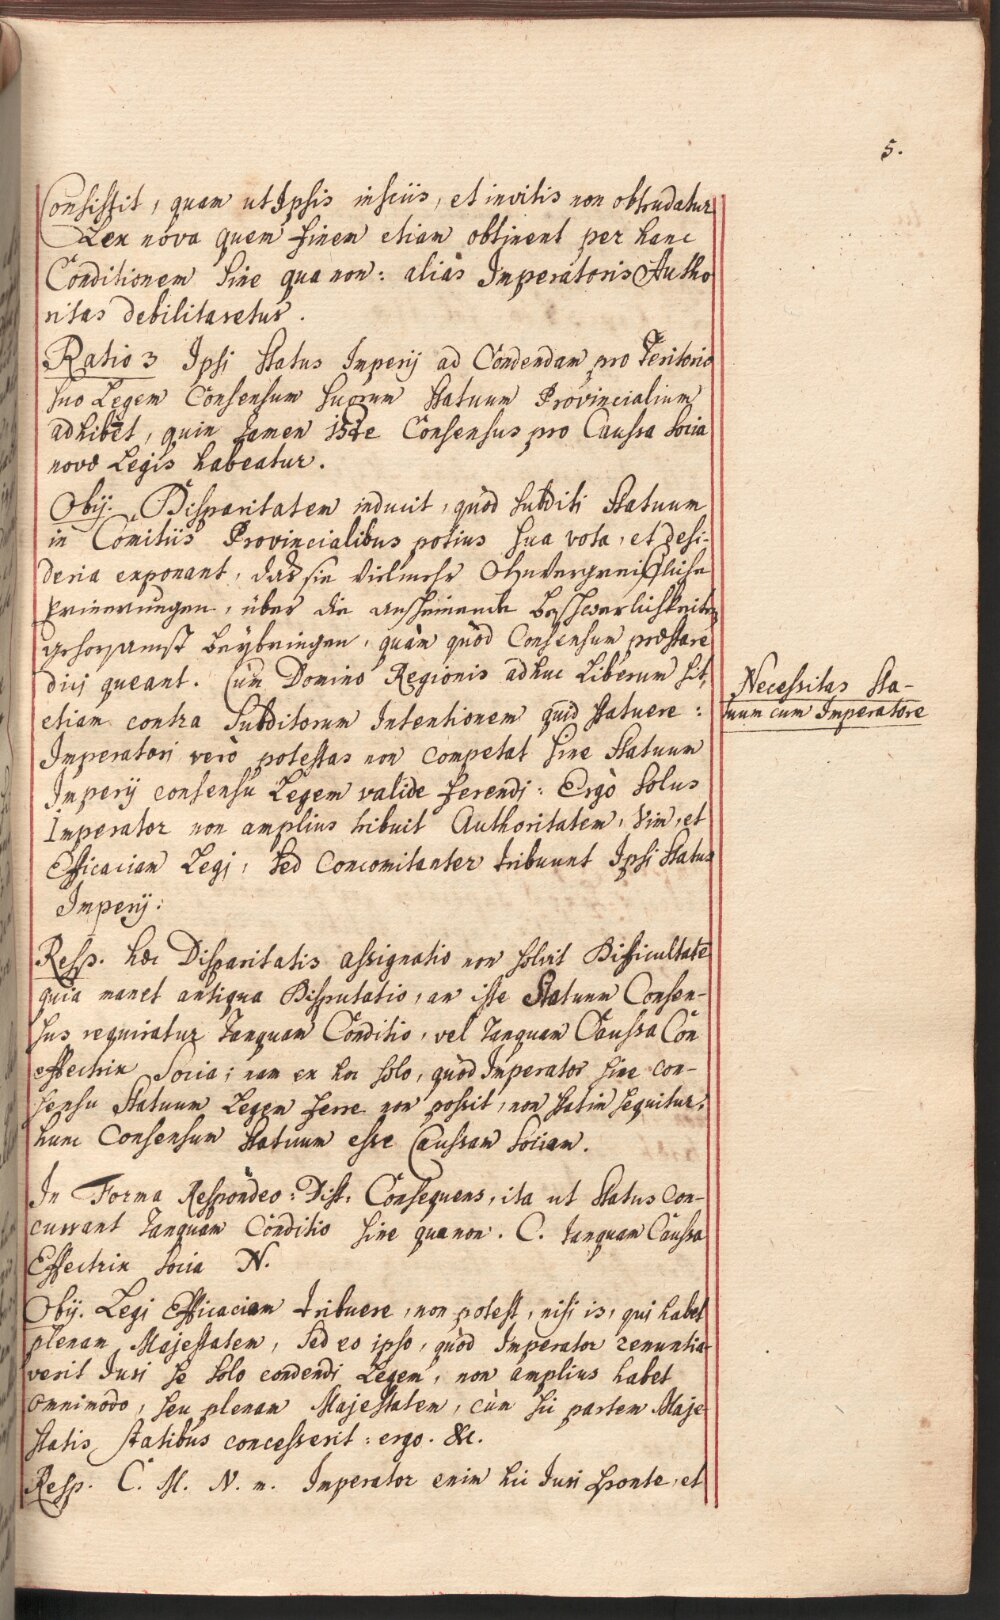 5.
Consistit, quam ut Ipsis insciis, et invitis non obtrudatur
Lex nova quem finem etiam obtinent per hanc
Conditionem sine qua non: alias Imperatoris Autho
ritas debilitaretur.
Ratio 3 Ipsi Status Imperij ad Condendam pro Teritorio
suo Legem Consensum suorum Statuum Provincialium
adhibēt, quin tamen iste Consensus pro Caussa Socia
novæ Legis habeatur.
Obij. Disparitatem inducit, quòd subditi Statuum
in Comitiis Provincialibus potius sua vota, et desi-
deria exponant, daß sie vielmehr Ohnvergreifliche
Erinnerungen, über die anscheinende Beschwerlichkeiten
gehorsamst beybringen, quàm quòd Consensum præstare
dici queant. Cum Domino Regionis adhuc Liberum sit,
etiam contra Subditorum Intentionem quid statuere:
Imperatori verò potestas non competat sine Statuum
Imperij consensu Legem valide ferendi: Ergò solus
Imperator non amplius tribuit Authoritatem, Vim, et
Efficaciam Legi, sed concomitanter tribuunt Ipsi Status
Imperij.
Necessitas Sta-
tuum cum Imperatore
Resp. hæc Disparitatis assignatio non solvit Difficultatē
quia manet antiqua Disputatio, an iste Statuum Consen-
sus requiratur tanquam Conditio, vel tanquam Caussa Con
effectrix Socia; nam ex hoc solo, quòd Imperator sine con-
sensu Statuum Legem ferre non possit, non statim sequitur,
hunc Consensum Statuum esse Caussam Sociam.
In Forma Respondeo: Dist. Consequens, ita ut Status con-
currant tanquam Conditio sine qua non. C. tanquam Caussa
Effectrix Socia N.
Obij. Legi Efficaciam tribuere, non potest, nisi is, qui habet
plenam Majestatem, sed eo ipso, quòd Imperator renuntia-
verit Juri se solo condendi Legem, non amplius habet
omnimodo, seu plenam Majestatem, cùm sii partem Maje-
statis statibus concesserit: ergo. &c.
Resp. C. M. N. m. Imperator enim hii Juri sponte, et